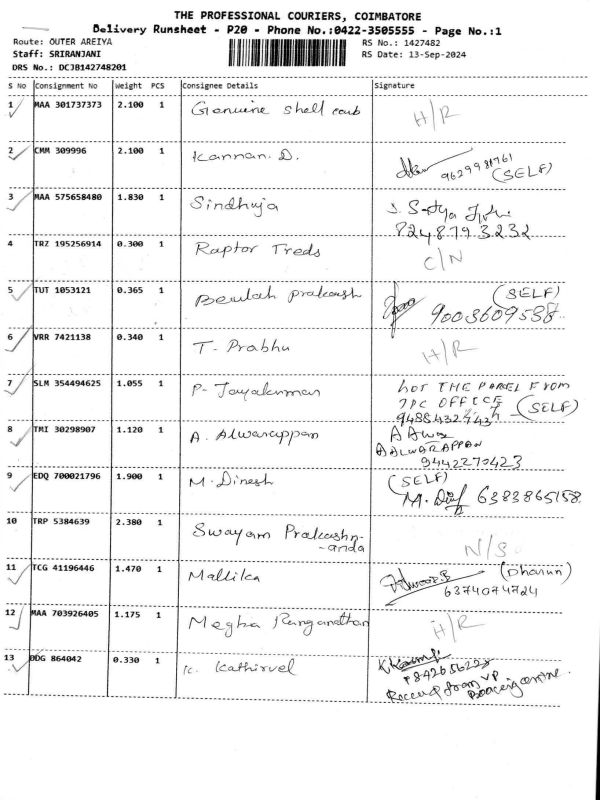 THE PROFESSIONAL COURIERS, COIMBATORE
Delivery Runsheet - P20 - Phone No.:0422-3505555 - Page No.:1
Route: OUTER AREIYA
RS No.: 1427482
Staff: SRIRANJANI
RS Date: 13-Sep-2024
DRS No.: DCJB142748201
S No Consignment No Weight PCS Consignee Details Signature
1 MAA 301737373 2.100 1 Genuine shell H/R
2 CMM 309996 2.100 1 Kannan. D. 9629981761
(SELF)
3 MAA 575658480 1.830 1 Sindhuja J. Sathya
8248793232
4 TRZ 195256914 0.300 1 Raptor Treds C/N
5 TUT 1053121 0.365 1 Beulah prakash (SELF)
9003609588
6 VRR 7421138 0.340 1 T. Prabhu H/R
7 SLM 354494625 1.055 1 P. Jayakumar GOT THE PARCEL FROM
TPC OFFICE
9488432743 (SELF)
8 TMI 30298907 1.120 1 A. Alwarappan
A ALWARAPPAN
9442270423
9 EDQ 700021796 1.900 1 M. Dinesh (SELF)
6383865158
10 TRP 5384639 2.380 1 Swayam Prakashn-
-anda N/S
11 TCG 41196446 1.470 1 Mallika (Dharun)
6374074724
12 MAA 703926405 1.175 1 Megha Rangandhan H/R
13 DDG 864042 0.330 1 K. Kathirvel
Received from VP